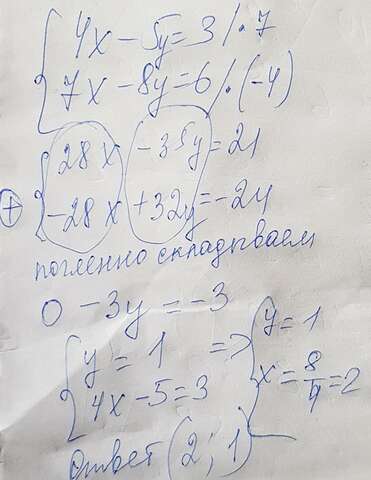 4x - 5y = 3 / · 7
7x - 8y = 6 / · (-4)
28x - 35y = 21
+ -28x + 32y = -24
почленно складываем
0 - 3y = -3
y = 1 => y = 1
4x - 5 = 3 x = 8/4 = 2
Ответ (2; 1)